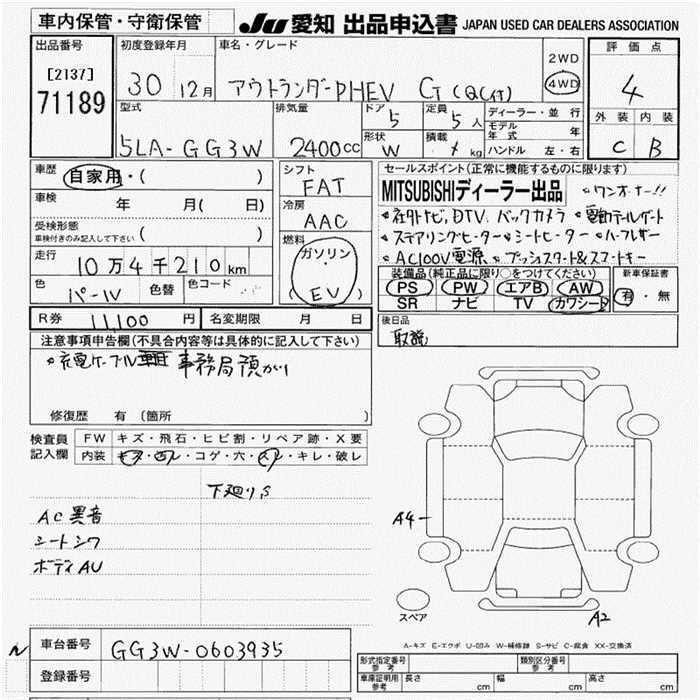 車内保管・守衛保管
JU 愛知 出品申込書 JAPAN USED CAR DEALERS ASSOCIATION
出品番号
[2137]
71189
初度登録年月
30 12月
車名・グレード
アウトランダーPHEV G(QC付)
2WD
4WD
評価点
4
外装 内装
C B
型式
5LA-GG3W
排気量
2400cc
ドア 5
形状 W
定員 5人
積載 kg
ディーラー・並行
モデル年式 年
ハンドル 左・右
車歴
自家用・( )
車検
年 月( 日)
受検形態
車検付きのみ記入して下さい ( )
走行
10万4千210km
色
パール
色替
色コード
シフト
FAT
冷房
AAC
燃料
ガソリン
(EV)
セールスポイント(正常に機能するものに限ります)
MITSUBISHIディーラー出品 ○ワンオーナー!!
○社外ナビ、DTV、バックカメラ ○電動テールゲート
○ステアリングヒーター ○シートヒーター ○ハーフレザー
○AC100V電源 ○プッシュスタート&スマートキー
装備品(純正品に限り○をつけてください)
PS PW エアB AW
SR ナビ TV カワシート
新車保証書
有・無
R券 11,100円
名変期限 月 日
後日品
取説
注意事項申告欄(不具合内容等は具体的に記入して下さい)
○充電ケーブル 事務局預かり
修復歴 有(箇所 )
検査員記入欄
FW キズ・飛石・ヒビ割・リペア跡・X要
内装 キズ・凹レ・コゲ・穴・スレ・キレ・破レ
下廻りS
AC異音
シートシワ
ボディAU
A4
スペア
A2
A-キズ E-エクボ U-凹み W-補修跡 S-サビ C-腐食 XX-交換済
車台番号
GG3W-0603935
登録番号
形式指定番号 参考
類別区分番号 参考
車庫証明用 参考 長さ cm 幅 cm 高さ cm